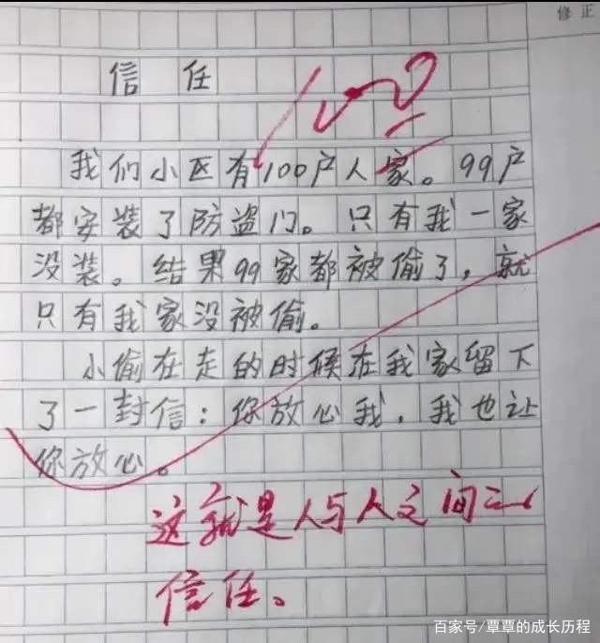 修正
信任
我们小区有100户人家。99户
都安装了防盗门。只有我一家
没装。结果99家都被偷了，就
只有我家没被偷。
小偷在走的时候在我家留下
了一封信：你放心我，我也让
你放心。
这就是人与人之间
信任。
百家号/覃覃的成长历程